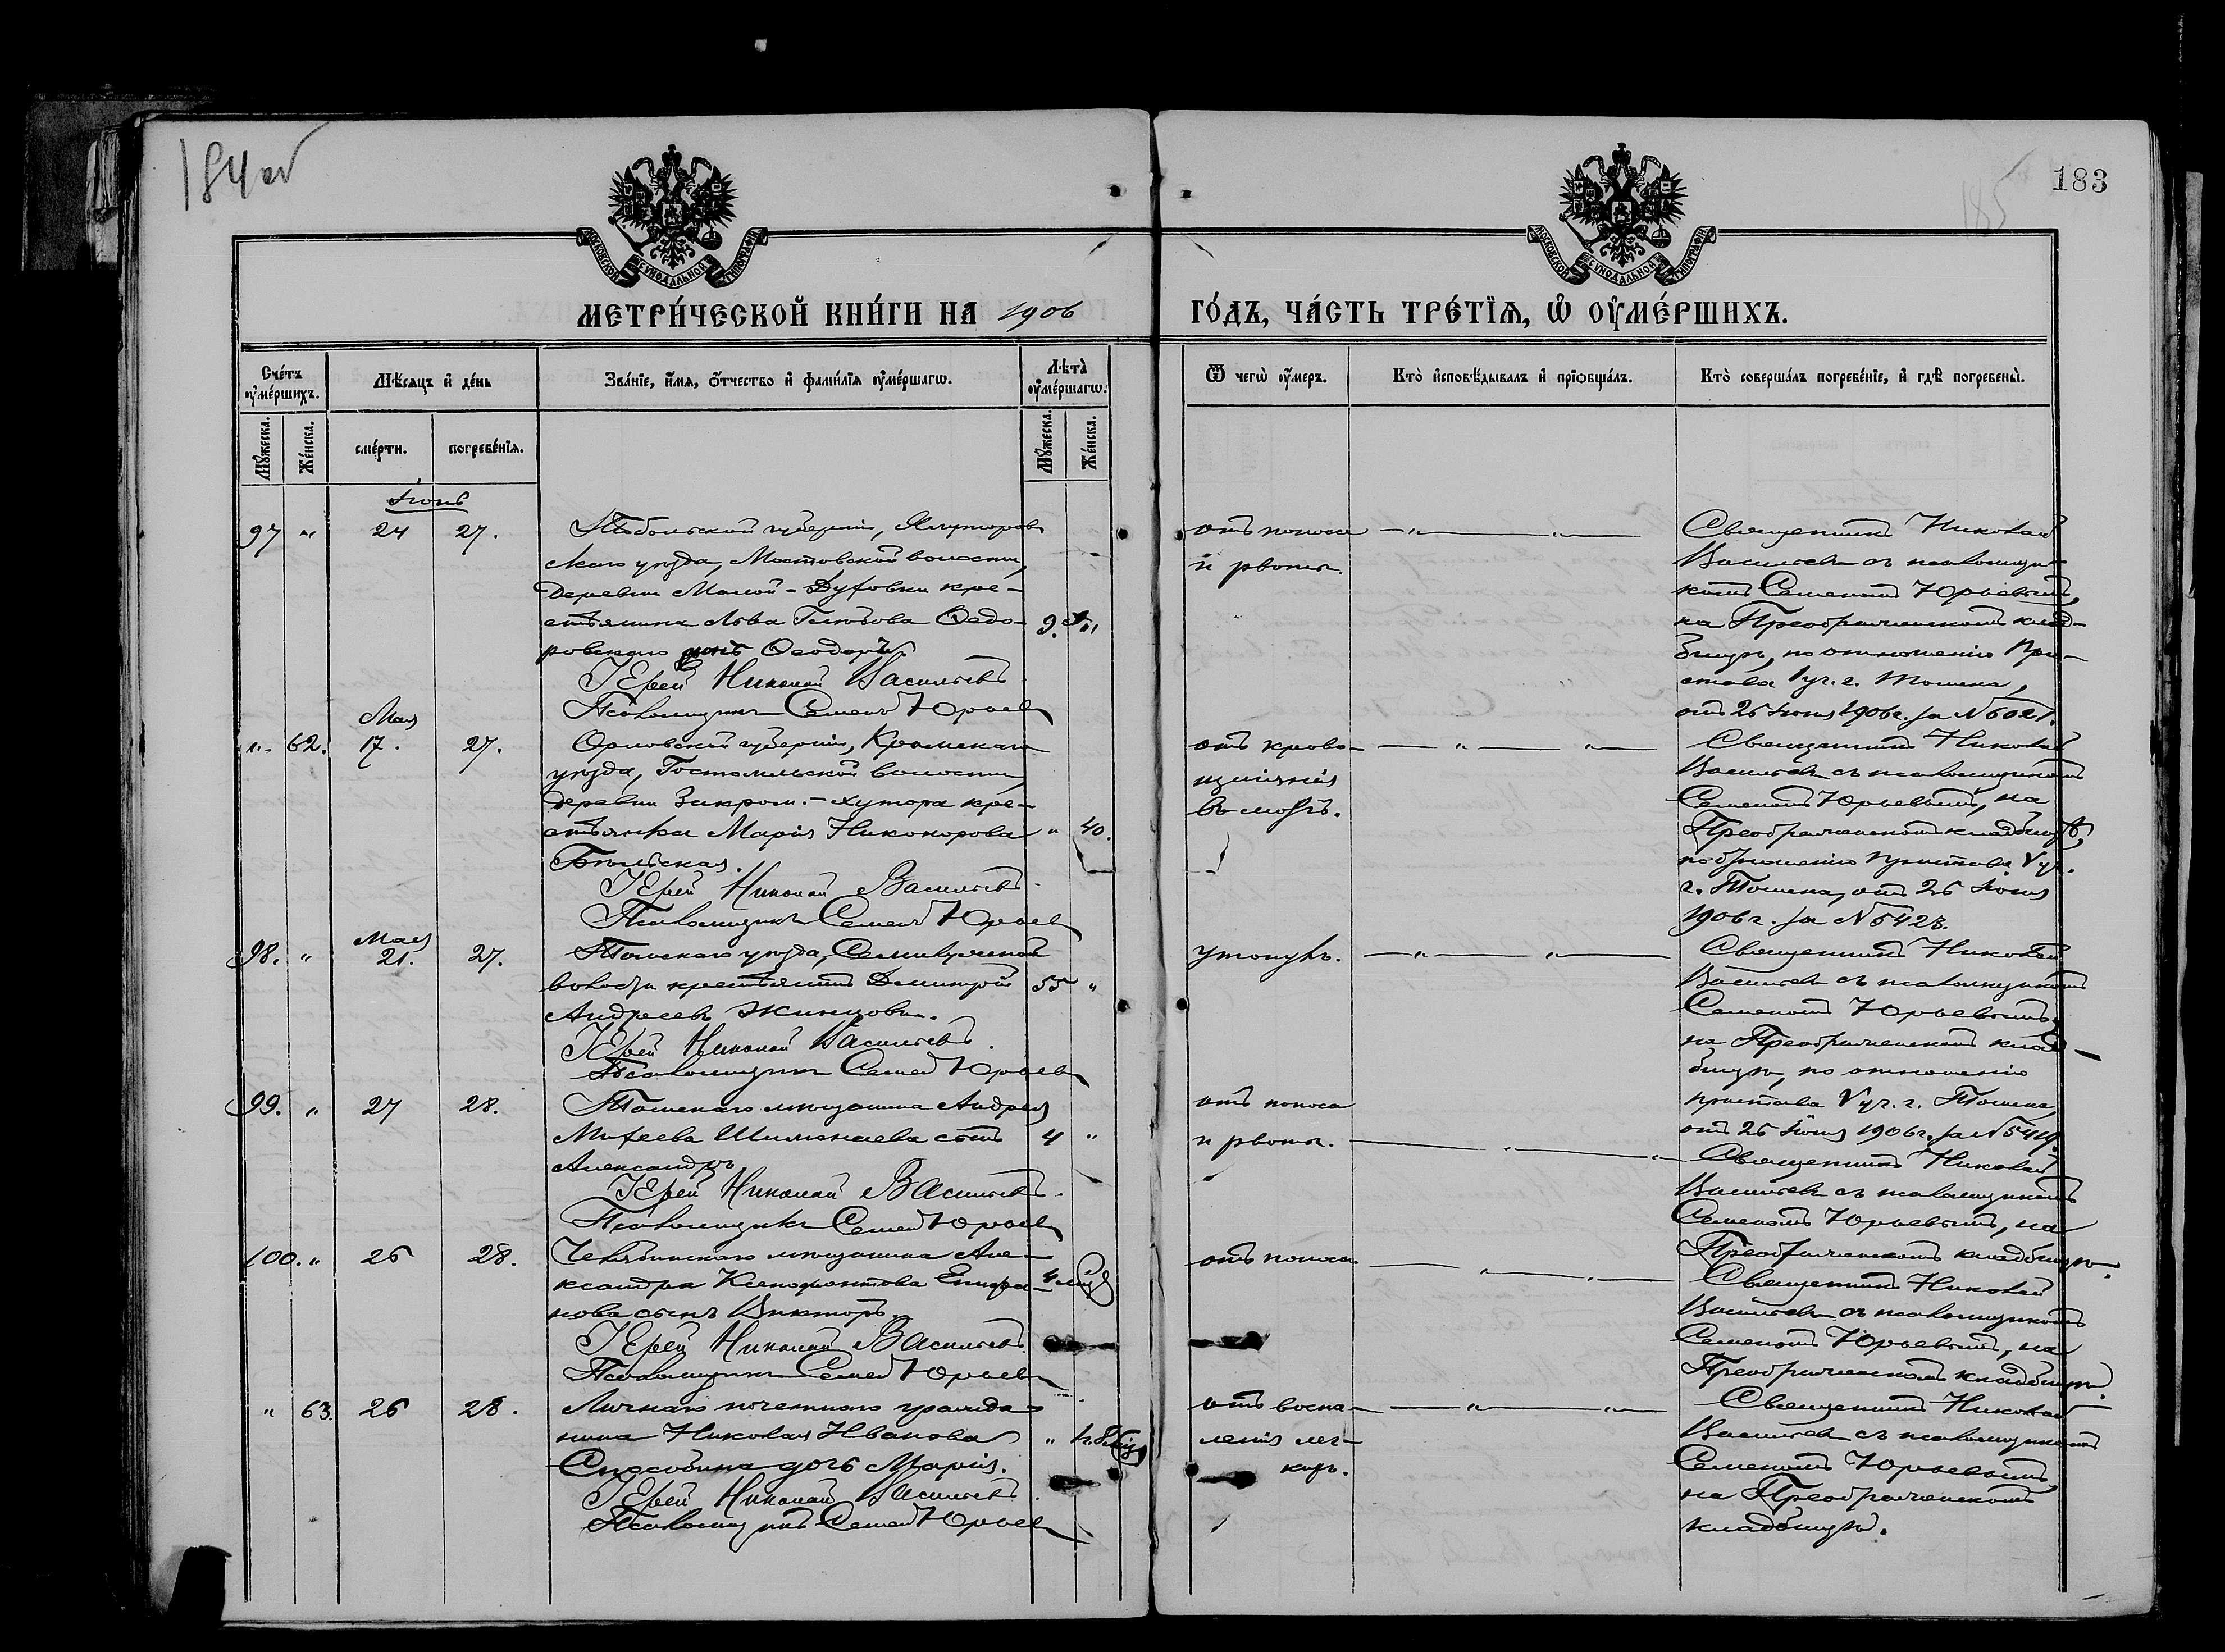 184об
183
185
МОСКОВСКОЙ СѴНОДАЛЬНОЙ ТИПОГРАФІИ
МОСКОВСКОЙ СѴНОДАЛЬНОЙ ТИПОГРАФІИ
МЕТРИ́ЧЕСКОЙ КНИ́ГИ НА 1906 ГО́ДЪ, ЧА́СТЬ ТРЕ́ТІЯ, Ѡ ОУ҆МЕ́РШИХЪ.
Сче́тъ оу҆ме́ршихъ.
Мѣ́сяцъ и҆ де́нь
Зва́нїе, и҆́мя, ѻ҆́тчество и҆ фами́лїя оу҆ме́ршагѡ.
Лѣта̀ оу҆ме́ршагѡ.
Ѿ чегѡ̀ оу҆́меръ.
Кто̀ и҆сповѣ́дывалъ и҆ прїѻбща́лъ.
Кто̀ соверша́лъ погребе́нїе, и҆ гдѣ̀ погребены̀.
Мꙋ́жеска.
Же́нска.
сме́рти.
погребе́нїя.
Мꙋ́жеска.
Же́нска.
Іюнь
97 " 24 27.
Тобольской губерніи, Ялуторов
скаго уѣзда, Мостовской волости,
деревни Малой-Духовки кре-
стьянина Льва Глѣбова Ѳедо-
ровскаго сынъ Ѳеодоръ.
9.
Іерей Николай Васильевъ.
Псаломщикъ Семенъ Юрьев
отъ поноса
и рвоты.
Священникъ Николай
Васильевъ съ псаломщи-
комъ Семеномъ Юрьевымъ,
на Преображенскомъ клад-
бищѣ, по отношенію При-
става V уч. г. Томска,
отъ 26 Іюня 1906 г. за № 6021.
Мая
" 62. 17. 27.
Орловской губерніи, Кромскаго
уѣзда, Гостомльской волости
деревни Закром.-хутора кре-
стьянка Марія Никонорова
" 40.
Іерей Николай Васильевъ.
Псаломщикъ Семенъ Юрьев
отъ крово-
изліянія
въ мозгъ.
Священникъ Николай
Васильевъ съ псаломщикомъ
Семеномъ Юрьевымъ, на
Преображенскомъ кладбищѣ,
по отношенію пристава V уч.
г. Томска, отъ 26 Іюня
1906 г. за № 5423.
Мая
98. " 21. 27.
Томскаго уѣзда, Семилужной
волости крестьянинъ Димитрій
Андреевъ
55 "
Іерей Николай Васильевъ.
Псаломщикъ Семенъ Юрьев
утонулъ.
Священникъ Николай
Васильевъ съ псаломщикомъ
Семеномъ Юрьевымъ,
на Преображенскомъ клад-
бищѣ, по отношенію
пристава V уч. г. Томска,
отъ 26 Іюня 1906 г. за № 5419.
99. " 27 28.
Томскаго мѣщанина Андрея
Михеева сынъ
Александръ
4 "
Іерей Николай Васильевъ.
Псаломщикъ Семенъ Юрьев
отъ поноса
и рвоты.
Священникъ Николай
Васильевъ съ псаломщикомъ
Семеномъ Юрьевымъ, на
Преображенскомъ кладбищѣ.
100. " 26 28.
Челябинскаго мѣщанина Але-
ксандра Ксенофонтова Епифа-
нова сынъ Викторъ.
4 мѣс
Іерей Николай Васильевъ.
Псаломщикъ Семенъ Юрьев
отъ поноса
Священникъ Николай
Васильевъ съ псаломщикомъ
Семеномъ Юрьевымъ, на
Преображенскомъ кладбищѣ.
" 63. 26 28.
Личнаго почетнаго гражда-
нина Николая Иванова
Способина дочь Марія.
"
Іерей Николай Васильевъ.
Псаломщикъ Семенъ Юрьев
отъ воспа-
ленія лег-
кихъ.
Священникъ Николай
Васильевъ съ псаломщикомъ
Семеномъ Юрьевымъ,
на Преображенскомъ
кладбищѣ.